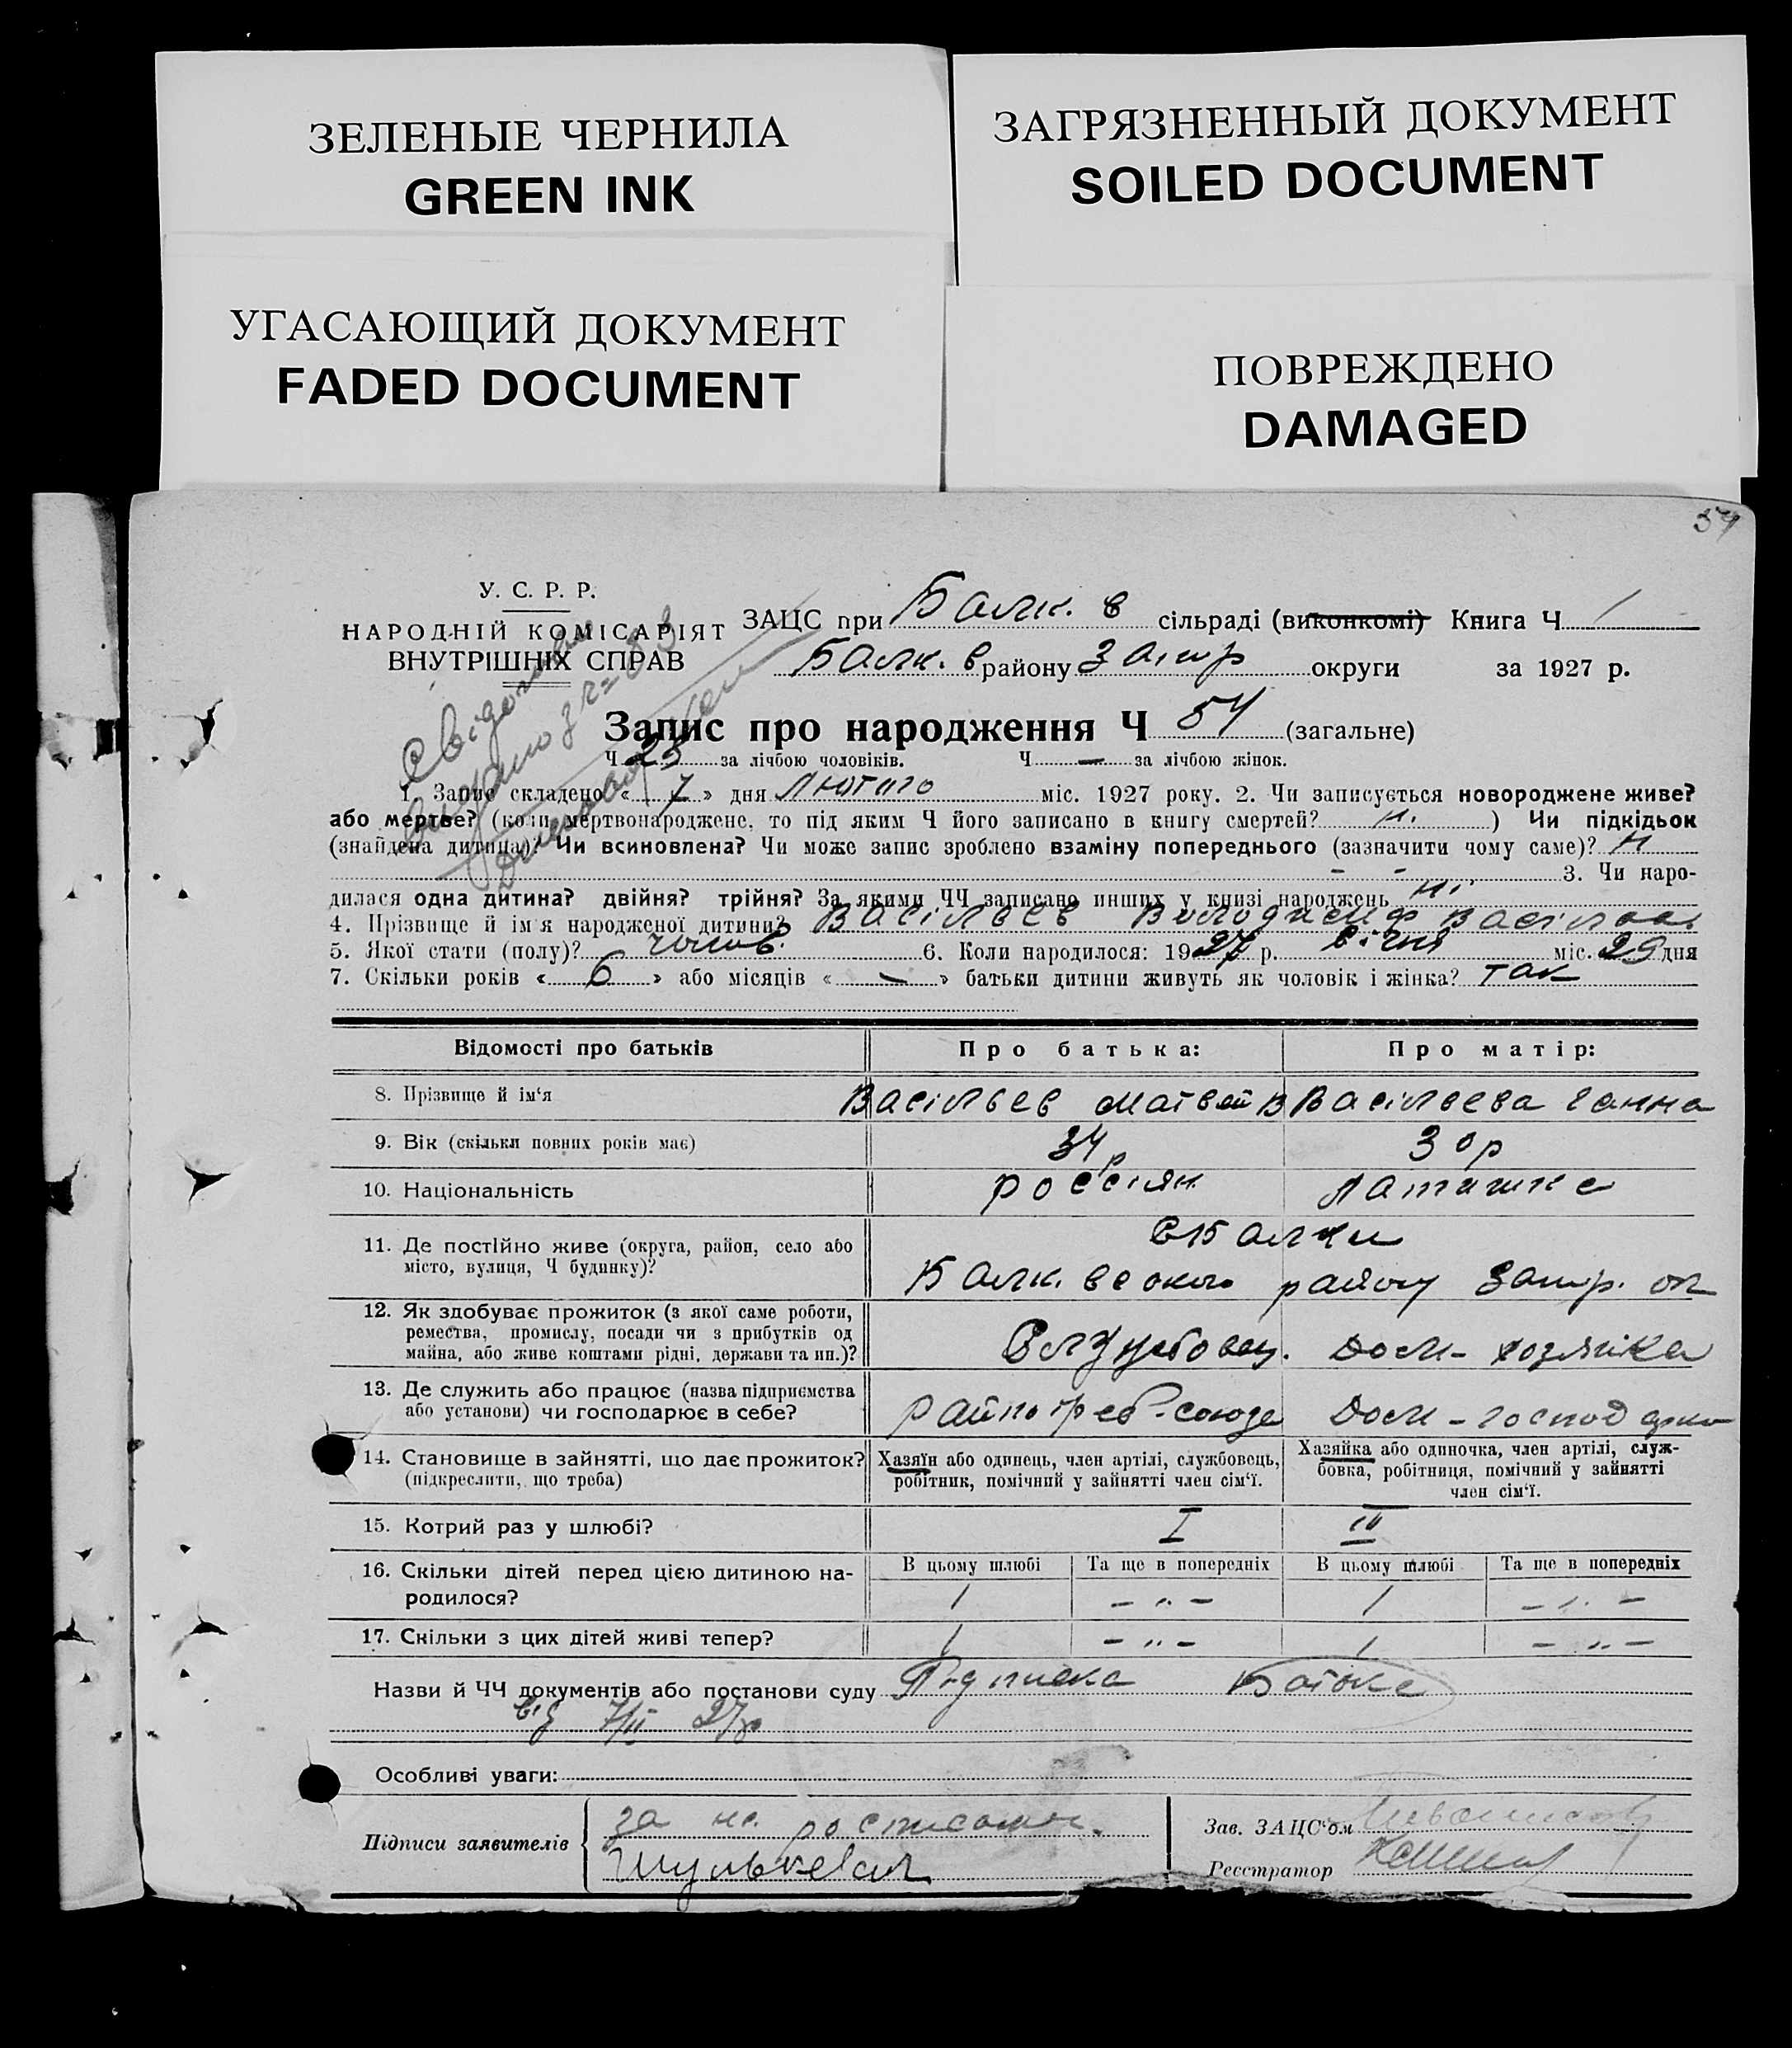 ЗЕЛЕНЫЕ ЧЕРНИЛА
GREEN INK
ЗАГРЯЗНЕННЫЙ ДОКУМЕНТ
SOILED DOCUMENT
УГАСАЮЩИЙ ДОКУМЕНТ
FADED DOCUMENT
ПОВРЕЖДЕНО
DAMAGED
54
У. С. Р. Р.
НАРОДНІЙ КОМІСАРІЯТ
ВНУТРІШНІХ СПРАВ
ЗАЦС при Балк. в сільраді (виконкомі) Книга Ч 1
Балк. в району Запор округи за 1927 р.
Запис про народження Ч 54 (загальне)
Ч 25 за лічбою чоловіків. Ч — за лічбою жінок.
1. Запис складено « 7 » дня Лютого міс. 1927 року. 2. Чи записується новороджене живе?
або мертве? (коли мертвонароджене, то під яким Ч його записано в книгу смертей? н. ) Чи підкідьок
(знайдена дитина)? Чи всиновлена? Чи може запис зроблено взаміну попереднього (зазначити чому саме)? н
- - 3. Чи наро-
дилася одна дитина? двійня? трійня? За якими ЧЧ записано инших у книзі народжень ні
4. Прізвище й ім'я народженої дитини? Васільєв Володимир Васільов.
5. Якої стати (полу)? чолов. 6. Коли народилося: 1927 р. січня міс. 29 дня
7. Скільки років « 6 » або місяців « — » батьки дитини живуть як чоловік і жінка? так
Відомості про батьків Про батька: Про матір:
8. Прізвище й ім'я Васільєв Матвей В Васільєва Ганна
9. Вік (скільки повних років має) 34 р 30 р
10. Національність россіян. Латишка
11. Де постійно живе (округа, район, село або
місто, вулиця, Ч будинку)?
с Балки
Балк. вского району Запр. ок
12. Як здобуває прожиток (з якої саме роботи,
ремества, промислу, посади чи з прибутків од
майна, або живе коштами рідні, держави та ин.)?
Службовец. Дом- хозяйка
13. Де служить або працює (назва підприємства
або установи) чи господарює в себе?
райпотреб. союзе Дом - господарка
14. Становище в зайнятті, що дає прожиток?
(підкреслити, що треба)
Хазяїн або одинець, член артілі, службовець,
робітник, помічний у зайнятті член сім'ї.
Хазяйка або одиночка, член артілі, служ-
бовка, робітниця, помічний у зайнятті
член сім'ї.
15. Котрий раз у шлюбі? I III
16. Скільки дітей перед цією дитиною на-
родилося?
В цьому шлюбі Та ще в попередніх В цьому шлюбі Та ще в попередніх
1 - „ - 1 - „ -
17. Скільки з цих дітей живі тепер? 1 - „ - 1 - „ -
Назви й ЧЧ документів або постанови суду Підписка Батька
від 7/II 27р
Особливі уваги:
Підписи заявителів за не
Зав. ЗАЦС'ом
Реєстратор